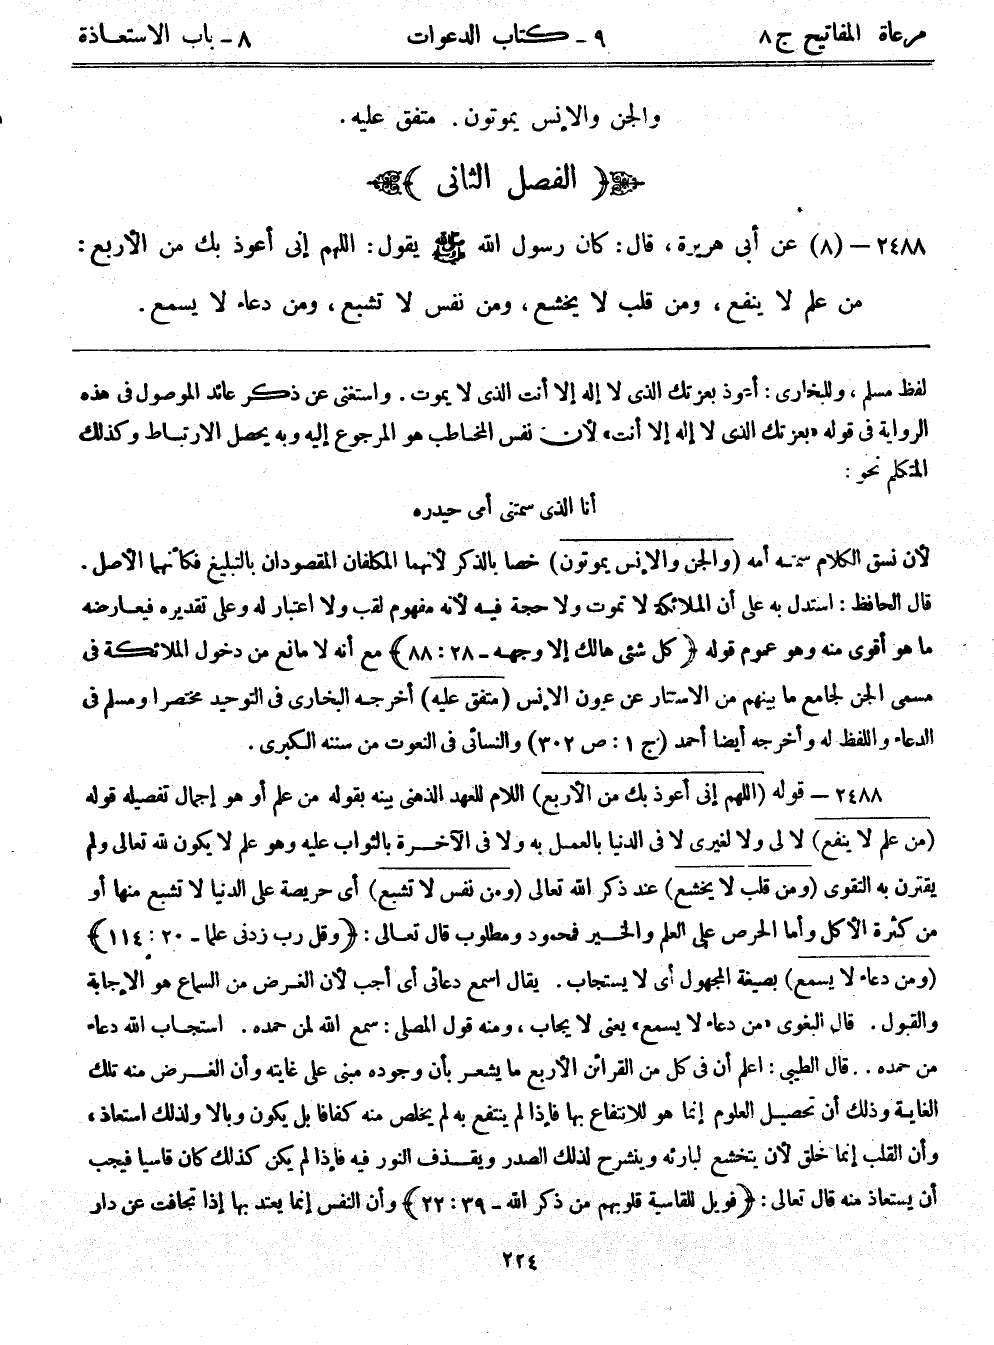 مرعاة المفاتيح ج ٨ ٩ – كتاب الدعوات ٨ – باب الاستعاذة
والجن والإنس يموتون . متفق عليه .
﴿ الفصل الثانى ﴾
٢٤٨٨ – (٨) عن أبى هريرة ، قال : كان رسول الله ﷺ يقول : اللهم إنى أعوذ بك من الأربع :
من علم لا ينفع ، ومن قلب لا يخشع ، ومن نفس لا تشبع ، ومن دعاء لا يسمع .
لفظ مسلم ، وللبخارى : أعوذ بعزتك الذى لا إله إلا أنت الذى لا يموت . واستغنى عن ذكر عائد الموصول فى هذه
الرواية فى قوله «بعزتك الذى لا إله إلا أنت» لأن نفس المخاطب هو المرجوع إليه وبه يحصل الارتباط وكذلك
المتكلم نحو :
أنا الذى سمتنى أمى حيدره
لأن نسق الكلام سمته أمه (والجن والإنس يموتون) خصا بالذكر لأنهما المكلفان المقصودان بالتبليغ فكأنهما الأصل .
قال الحافظ : استدل به على أن الملائكة لا تموت ولا حجة فيه لأنه مفهوم لقب ولا اعتبار له وعلى تقديره فيعارضه
ما هو أقوى منه وهو عموم قوله ﴿ كل شئى هالك إلا وجهه – ٢٨ : ٨٨ ﴾ مع أنه لا مانع من دخول الملائكة فى
مسمى الجن لجامع ما بينهم من الاستتار عن عيون الإنس (متفق عليه) أخرجه البخارى فى التوحيد مختصرا ومسلم فى
الدعاء واللفظ له وأخرجه أيضا أحمد (ج ١ : ص ٣٠٢) والنسائى فى النعوت من سننه الكبرى .
٢٤٨٨ – قوله (اللهم إنى أعوذ بك من الأربع) اللام للعهد الذهنى بينه بقوله من علم أو هو إجمال تفصيله قوله
(من علم لا ينفع) لا لى ولا لغيرى لا فى الدنيا بالعمل به ولا فى الآخرة بالثواب عليه وهو علم لا يكون لله تعالى ولم
يقترن به التقوى (ومن قلب لا يخشع) عند ذكر الله تعالى (ومن نفس لا تشبع) أى حريصة على الدنيا لا تشبع منها أو
من كثرة الأكل وأما الحرص على العلم والخير فمحمود ومطلوب قال تعالى : ﴿ وقل رب زدنى علما – ٢٠ : ١١٤ ﴾
(ومن دعاء لا يسمع) بصيغة المجهول أى لا يستجاب . يقال اسمع دعائى أى أجب لأن الغرض من السماع هو الإجابة
والقبول . قال البغوى «من دعاء لا يسمع» يعنى لا يجاب ، ومنه قول المصلى : سمع الله لمن حمده . استجاب الله دعاء
من حمده . . قال الطيبى : اعلم أن فى كل من القرائن الأربع ما يشعر بأن وجوده مبنى على غايته وأن الغرض منه تلك
الغاية وذلك أن تحصيل العلوم إنما هو للانتفاع بها فإذا لم ينتفع به لم يخلص منه كفافا بل يكون وبالا ولذلك استعاذ ،
وأن القلب إنما خلق لأن يتخشع لبارئه وينشرح لذلك الصدر ويقذف النور فيه فإذا لم يكن كذلك كان قاسيا فيجب
أن يستعاذ منه قال تعالى : ﴿ فويل للقاسية قلوبهم من ذكر الله – ٣٩ : ٢٢ ﴾ وأن النفس إنما يعتد بها إذا تجافت عن دار
٢٢٤